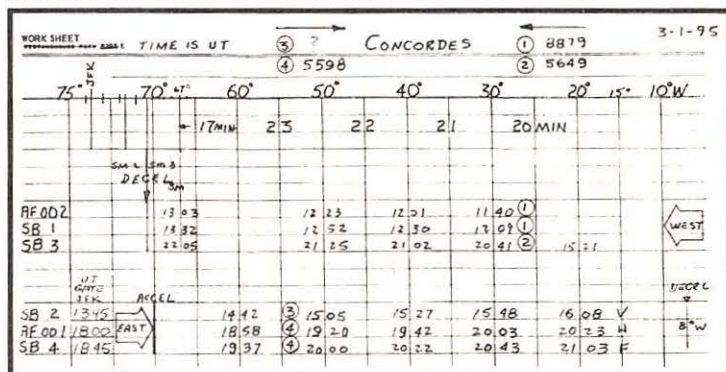 WORK SHEET TIME IS UT ③ ? CONCORDES ① 8879 3-1-95
④ 5598 ② 5649
JFK
75° 70° 67° 60° 50° 40° 30° 20° 15° 10°W
← 17MIN 23 22 21 20 MIN
SM 2 SM 3
DECEL
SM
AF 002 13 03 12 23 12 01 11 40 ①
SB 1 13 32 12 52 12 30 12 09 ① WEST
SB 3 22 05 21 25 21 02 20 41 ② 15 21
UT
GATE
JFK ACCEL DECEL
SB 2 1345 14 42 ③ 15 05 15 27 15 48 16 08 V
AF 001 1800 EAST 18 58 ④ 19 20 19 42 20 03 20 23 W 8°W
SB 4 1845 19 37 ④ 20 00 20 22 20 43 21 03 F